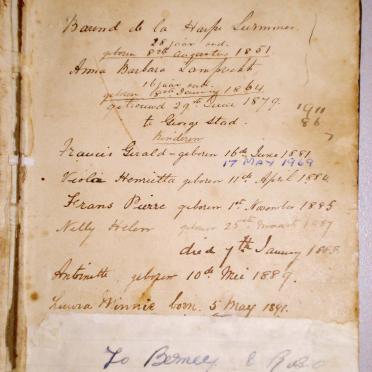 Barend de la Harpe Lummer
28 jaar oud.
geboren 8th Augustus 1851
Anna Barbara Lamprecht
16 jaar oud
geboren January 1864
Getrouwd 29th June 1879.
to George Stad.
1911
86
Kinderen
Francis Gerald - geboren 16th June 1881
17 MAY 1969
Violia Henrietta geboren 11th April 1884
Frans Pierre geboren 1st November 1885
Nelly Helen geboren 25th Maart 1887
died 7th January 1888
Antoinette geboren 10th Mei 1889.
Laura Winnie born. 5 May 1891.
To